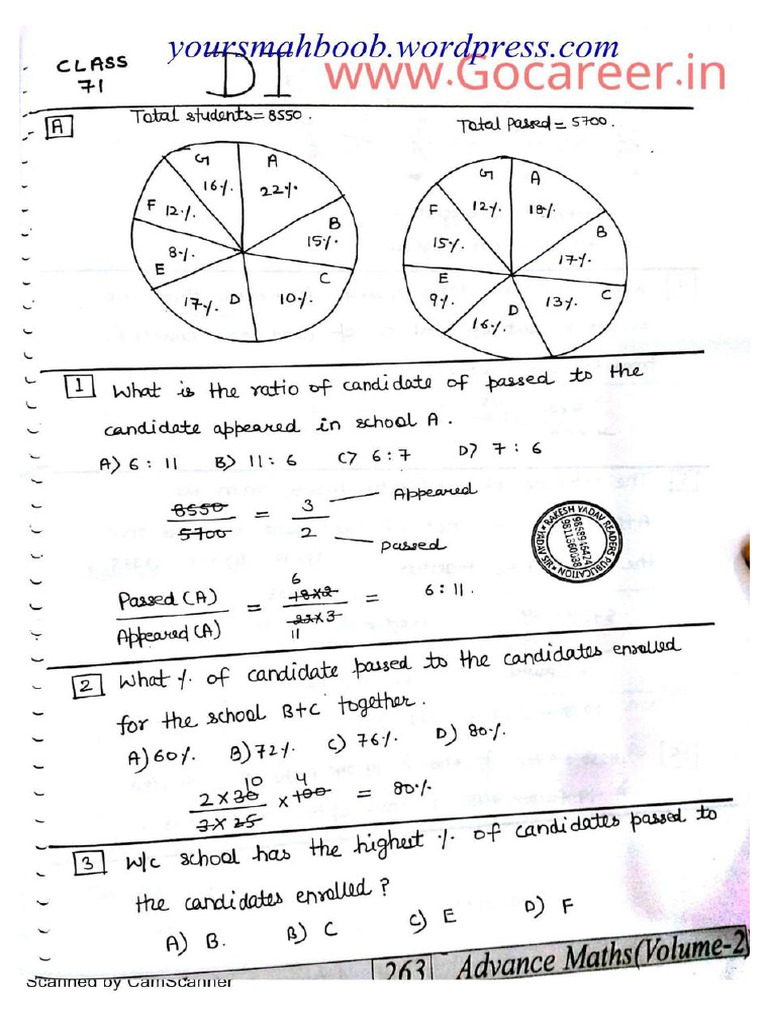 yoursmahboob.wordpress.com
CLASS
71
DI
www.Gocareer.in
A
Total students = 8550.
Total Passed = 5700.
G
16%.
A
22%.
F
12%.
B
15%.
8%.
E
C
17%.
D
10%.
G
12%.
A
18%.
F
15%.
B
17%.
E
9%.
D
16%.
13%.
C
1 What is the ratio of candidate of passed to the
candidate appeared in school A.
A) 6 : 11 B) 11 : 6 C) 6 : 7 D) 7 : 6
8550 / 5700 = 3 / 2
Appeared
passed
Passed (A) / Appeared (A) = 18×2 / 22×3 = 6 : 11.
6
11
RAKESH YADAV READERS PUBLICATION
9868946424
9811560038
2 What % of candidate passed to the candidates enrolled
for the school B+C together.
A) 60%. B) 72%. C) 76%. D) 80%.
10 4
2 × 30 / 3 × 25 × 100 = 80%
3 W/c school has the highest % of candidates passed to
the candidates enrolled ?
A) B. B) C C) E D) F
263 Advance Maths(Volume-2)
Scanned by CamScanner